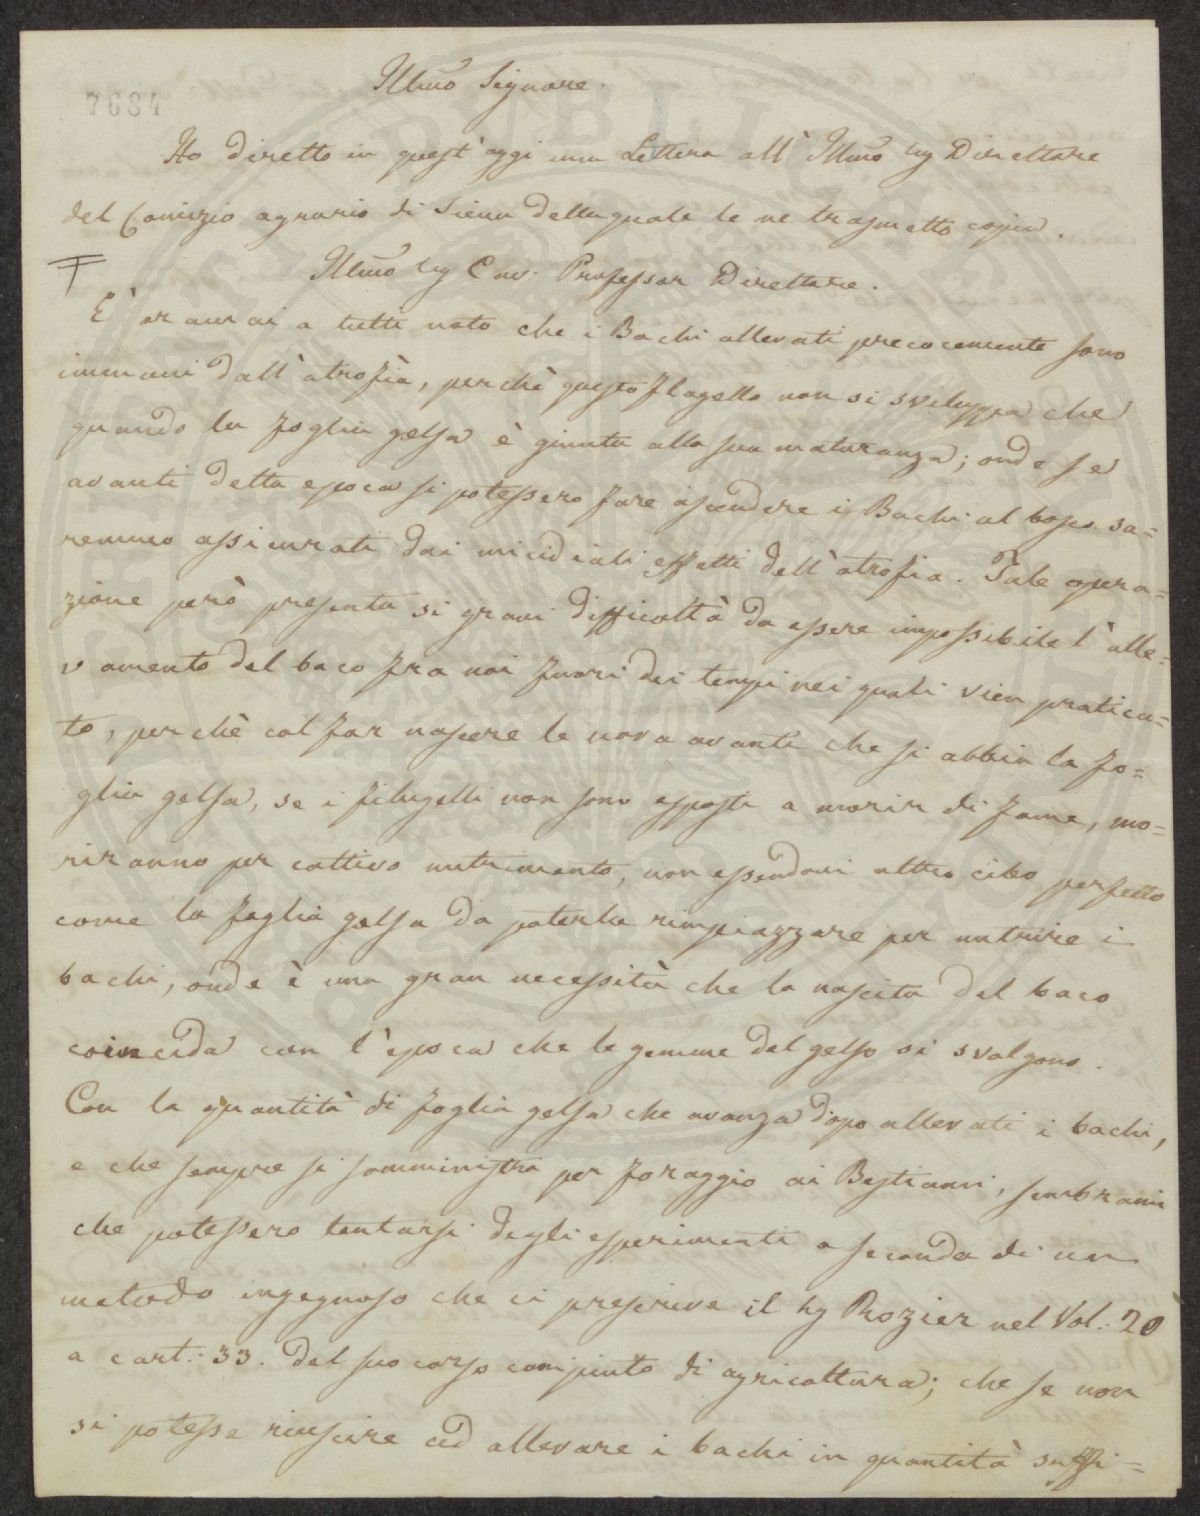 7634
Illmo Signore.
Ho diretto in quest'aggi una Lettera all'Illmo Sig Direttore
del Comizio agrario di Siena della quale le ne trasmetto copia.
Illmo Sig Cav. Professor Direttore.
E' oramai a tutti noto che i Bachi allevati precocemente sono
immuni dall'atrofia, perchè questo flagello non si sviluppa che
quando la foglia gelsa è giunta alla sua maturanza; onde se
avanti detta epoca si potessero fare ascendere i Bachi al bosco sa=
remmo assicurati dai micidiali effetti dell'atrofia. Tale opera=
zione però presenta si gravi difficoltà da essere impossibile l'alle=
vamento del baco fra noi fuori dei tempi nei quali vien pratica=
to, perchè col far nascere le uova avanti che si abbia la fo=
glia gelsa, se i filugelli non sono esposti a morir di fame, mo=
riranno per cattivo nutrimento, non essendovi altro cibo perfetto
come la foglia gelsa da poterla rimpiazzare per nutrire i
bachi, onde è una gran necessità che la nascita del baco
coincida con l'epoca che le gemme del gelso si svolgono.
Con la quantità di foglia gelsa che avanza dopo allevati i bachi,
e che sempre si somministra per foraggio ai Bestiami, sembrami
che potessero tentarsi degli esperimenti a seconda di un
metodo ingegnoso che ci prescrive il Sig Rozier nel Vol: 20
a cart: 33. del suo corso compiuto di agricoltura; che se non
si potesse riuscire ad allevare i bachi in quantità suffi=